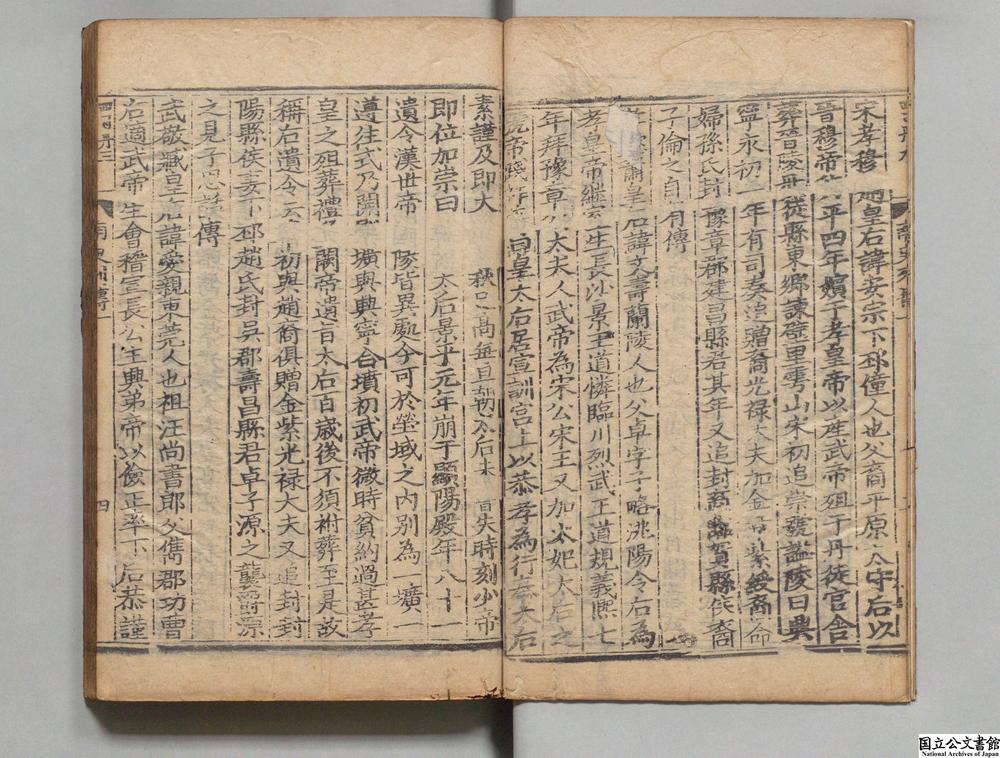 宋孝穆皇后諱安宗下邳僮人也父裔平原太守后以
晉穆帝平四年嬪于孝皇帝以產武帝殂于丹徒官舍
葬晉陵丹從縣東鄉諫壁里雩山宋初追崇號謚陵曰興
寧永初二年有司奏追贈裔光禄大夫加金章紫綬裔命
婦孫氏封豫章郡建昌縣君其年又追封裔臨賀縣侯裔
子倫之自有傳
蕭皇后諱文壽蘭陵人也父卓字子略洮陽令后為
孝皇帝繼室生長沙景王道憐臨川烈武王道規義熙七
年拜豫章公太夫人武帝為宋公宋王又加太妃太后之
號帝踐阼尊曰皇太后居宣訓宮上以恭孝為行奉太后
素謹及即大秋已高每旦朝太后未嘗失時刻少帝
即位加崇曰太后景平元年崩于顯陽殿年八十一
遺令漢世帝陵皆異處今可於塋域之內別為一壙一
遵往式乃開壙與興寧合墳初武帝微時貧約過甚孝
皇之殂葬禮闕帝遺旨太后百歲後不須祔葬至是故
稱后遺令云初與趙裔俱贈金紫光禄大夫又追封封
陽縣侯妻下邳趙氏封吳郡壽昌縣君卓子源之襲爵源
之見子思話傳
武敬臧皇后諱愛親東莞人也祖汪尚書郎父儁郡功曹
后適武帝生會稽宣長公主興弟帝以儉正率下后恭謹
四
国立公文書館
National Archives of Japan